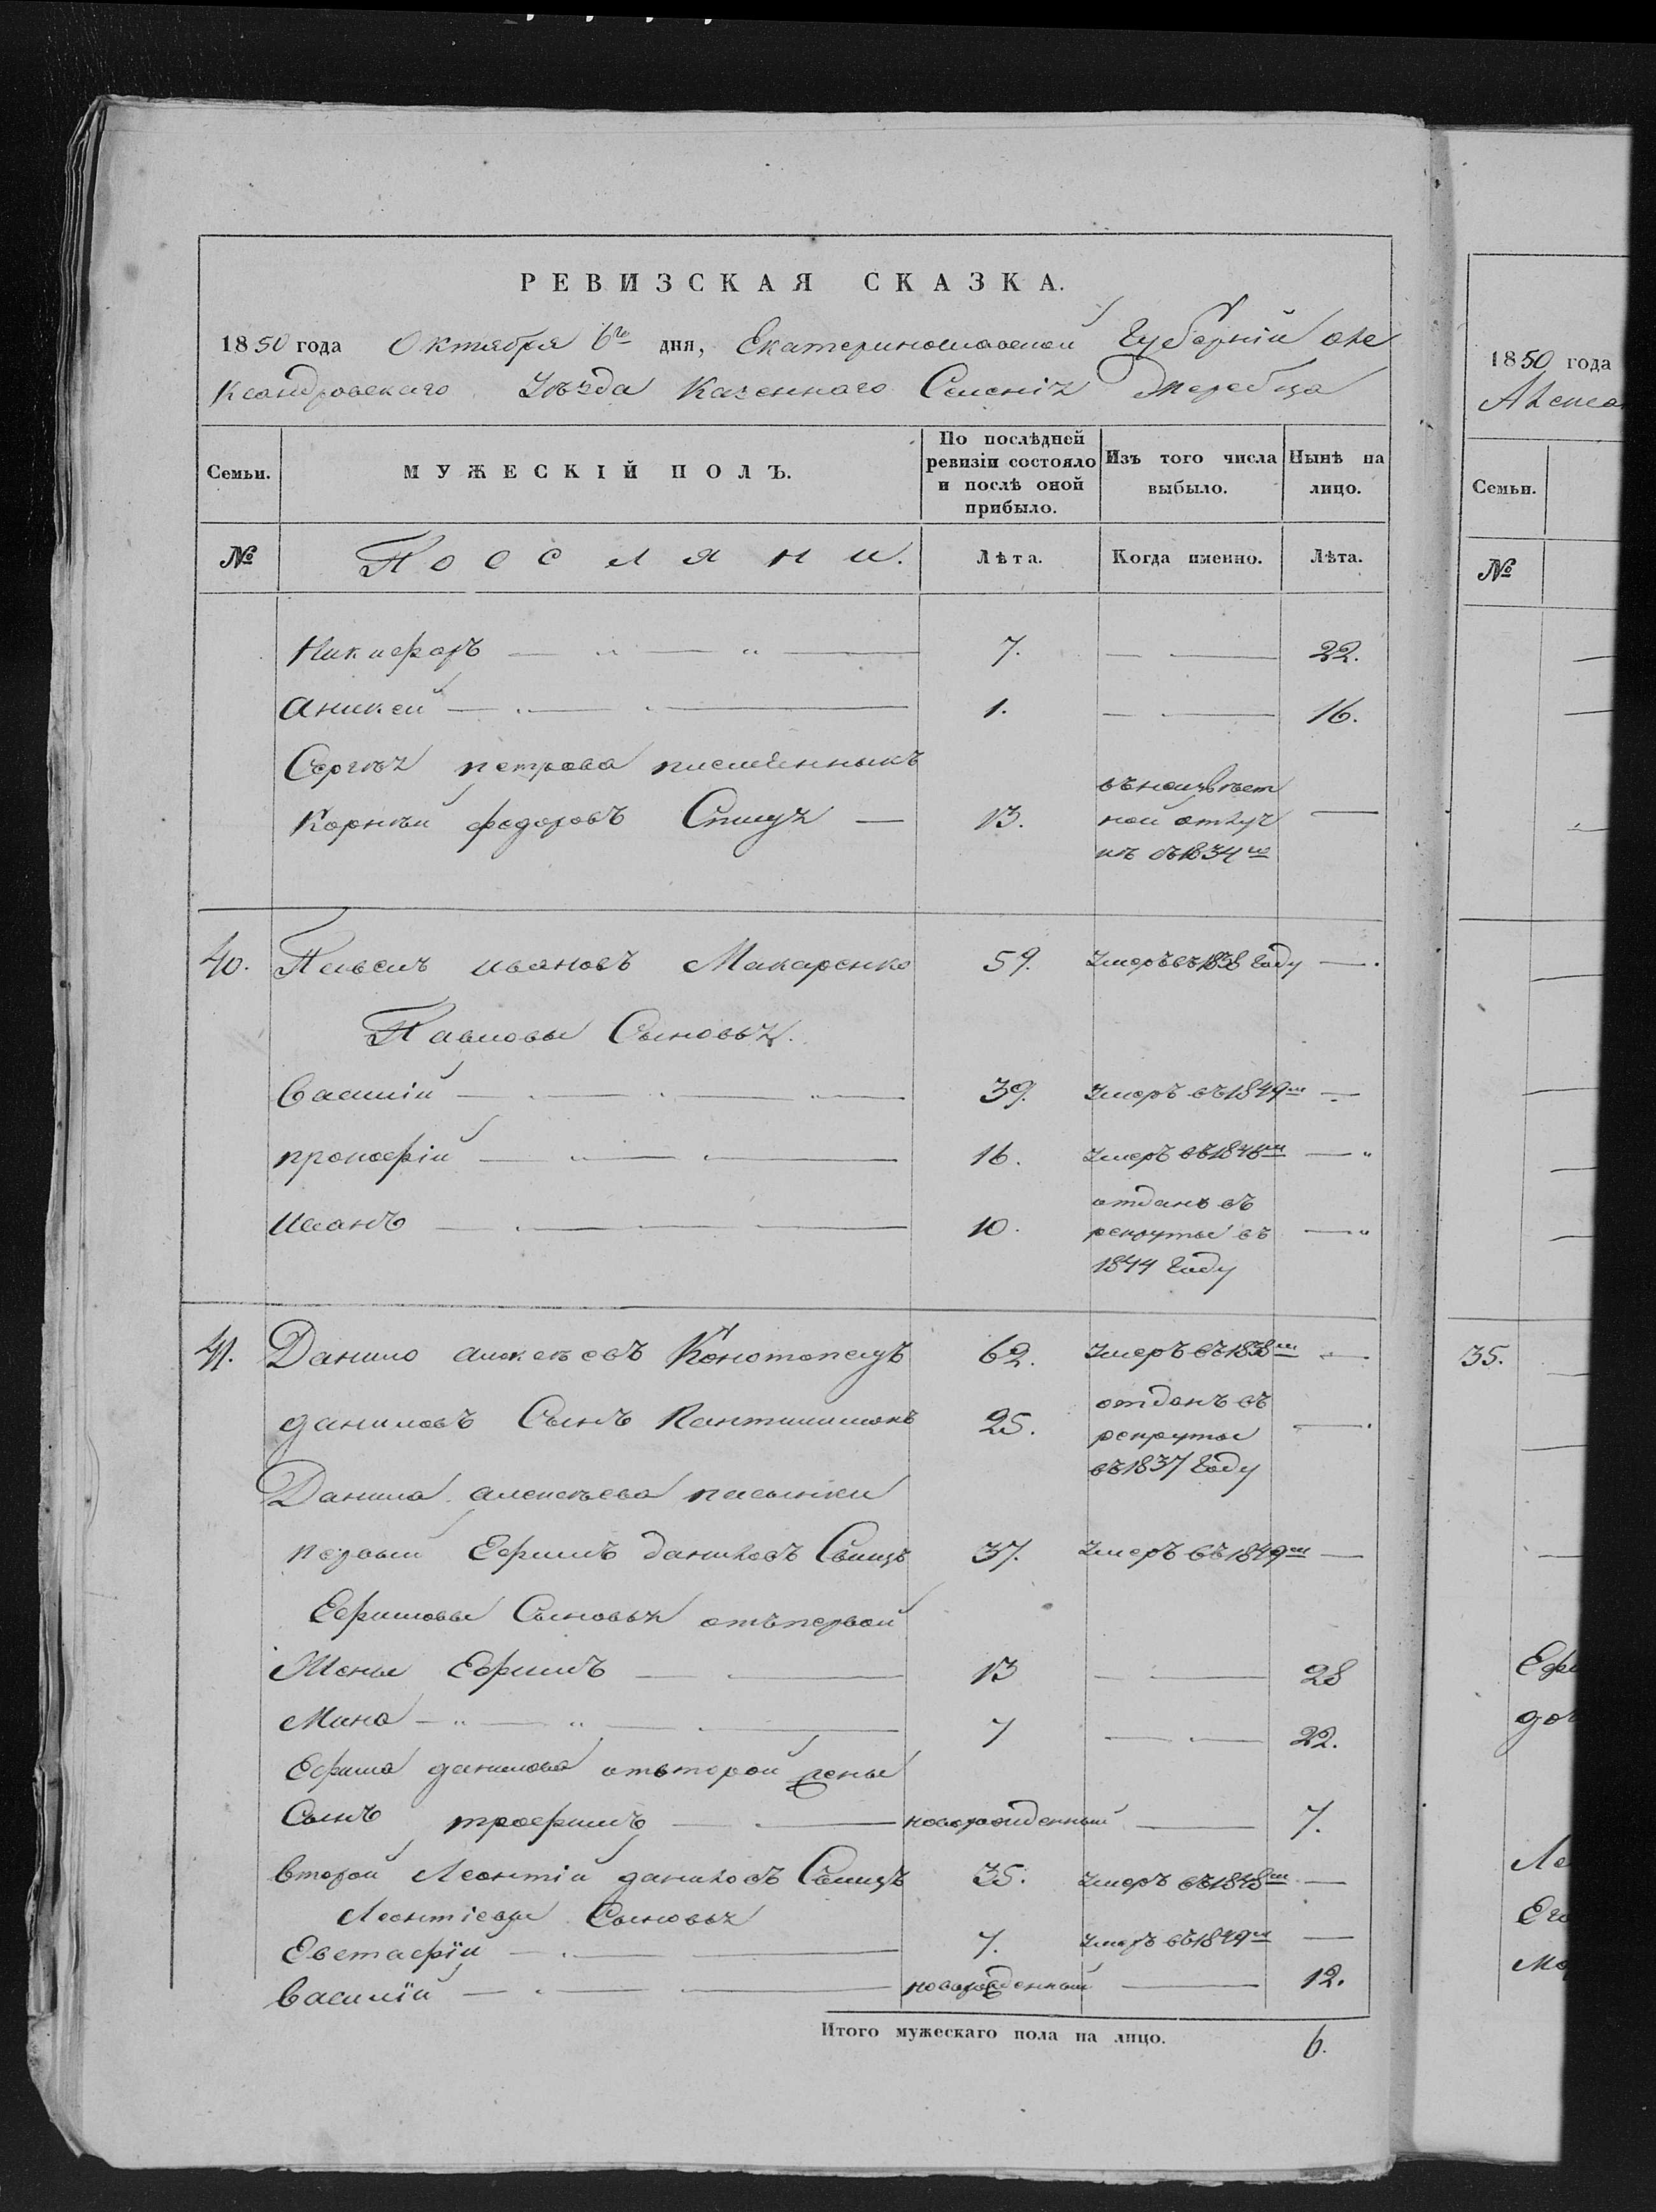 РЕВИЗСКАЯ СКАЗКА.
1850 года Октября 6го дня, Екатеринославской Губерніи Але
ксандровскаго Уѣзда Казеннаго Селенія Жеребца
Семьи. МУЖЕСКІЙ ПОЛЪ. По послѣдней ревизіи состояло и послѣ оной прибыло. Изъ того числа выбыло. Нынѣ на лицо.
№ Поселяни. Лѣта. Когда именно. Лѣта.
Никифоръ — " — " — 7. — — 22.
Аникей — . — . — 1. — — 16.
Сергѣя петрова
Корнѣй федоровъ — 13. ной отлуч
кѣ съ 1834го —
40. Павелъ ивановъ Макаренко 59. Умеръ въ 1838 Году —
Павловы Сыновья.
Василій — 39. Умеръ въ 1849м —
прокофій — 16. Умеръ въ 1846м — "
Иванъ — 10. отданъ въ
рекруты въ — "
1844 Году
41. Данило алексѣевъ Конотопецъ 62. Умеръ въ 1838м —
даниловъ Сынъ Пантилимонъ 25. отданъ въ
рекруты —
въ 1837 Году
Данила алексѣева пасынки
первый Ефимъ даниловъ 37. Умеръ въ 1849м —
Ефимовы Сыновья отъ первой
Жены Ефимъ — 13 — 28
Мина — " — " — 7 — 22.
Ефима данилова отвторой жены
Сынъ трофимъ — новорожденный — 7.
второй Леонтій даниловъ 35. Умеръ въ 1848м —
Леонтіевы Сыновья
Евстафій — 7. Умеръ въ 1849м —
Василій — новорожденный — 12.
Итого мужескаго пола на лицо. 6.
1850 года
Семьи.
№
35.